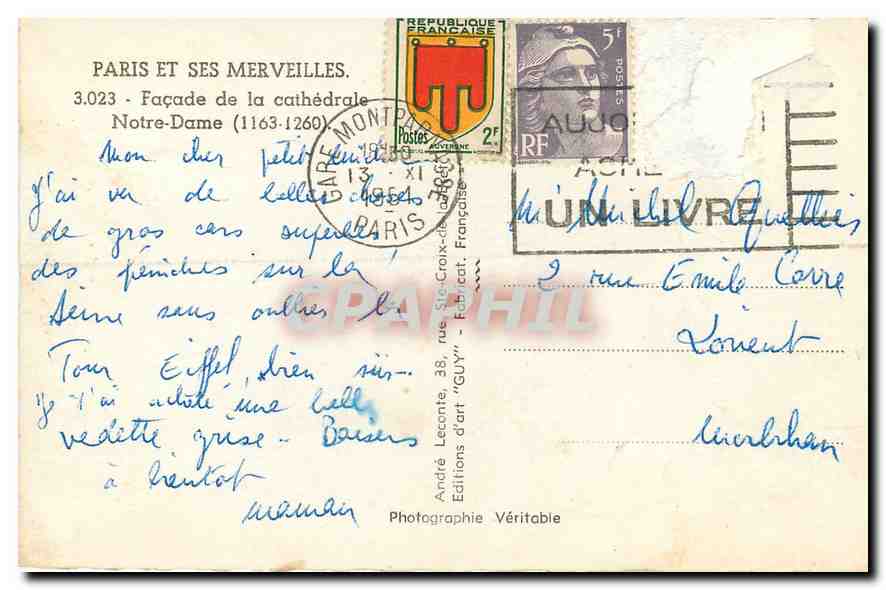 PARIS ET SES MERVEILLES.
3.023 - Façade de la cathédrale
Notre-Dame (1163-1260)
Mon cher petit
J'ai vu de belles choses
de gros cars superbes
des péniches sur la
Seine sans oublier la
Tour Eiffel, bien sûr.
Je t'ai acheté une belle
vedette grise - Baisers
à bientôt
maman
RÉPUBLIQUE
FRANÇAISE
Postes
2F
AUVERGNE
5F
POSTES
RF
GARE MONTPARNASSE
13 XI
1951
PARIS
AUJO
ACHE
UN LIVRE
Mr Michel
2 rue Emile Carre
Lorient
Morbihan
André Leconte, 38, rue Ste-Croix-de
Editions d'art "GUY" - Fabricat. Française
Photographie Véritable
CPAPHIL